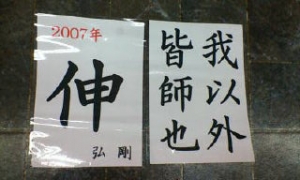 2007年
伸
弘剛
我以外
皆師也